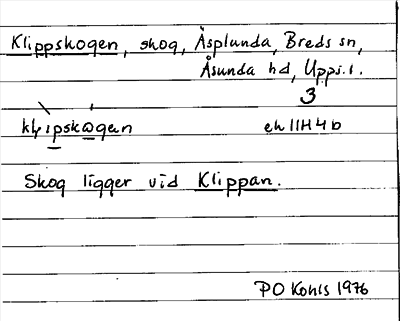 Klippskogen, skog, Äsplunda, Breds sn,
Åsunda hd, Upps.l.
3
klıpskogen ek 11H4b
Skog ligger vid Klippan.
P O Kohls 1976